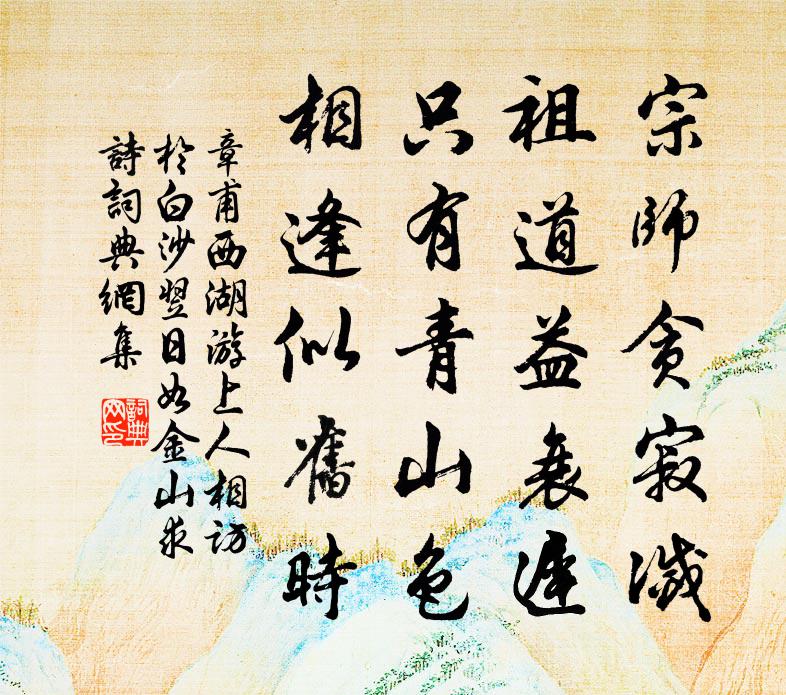 宗師貪寂滅
祖道益衰遲
只有青山色
相逢似舊時
章甫西湖游上人相訪
於白沙翌日如金山求
詩詞典網集
詞典
网印